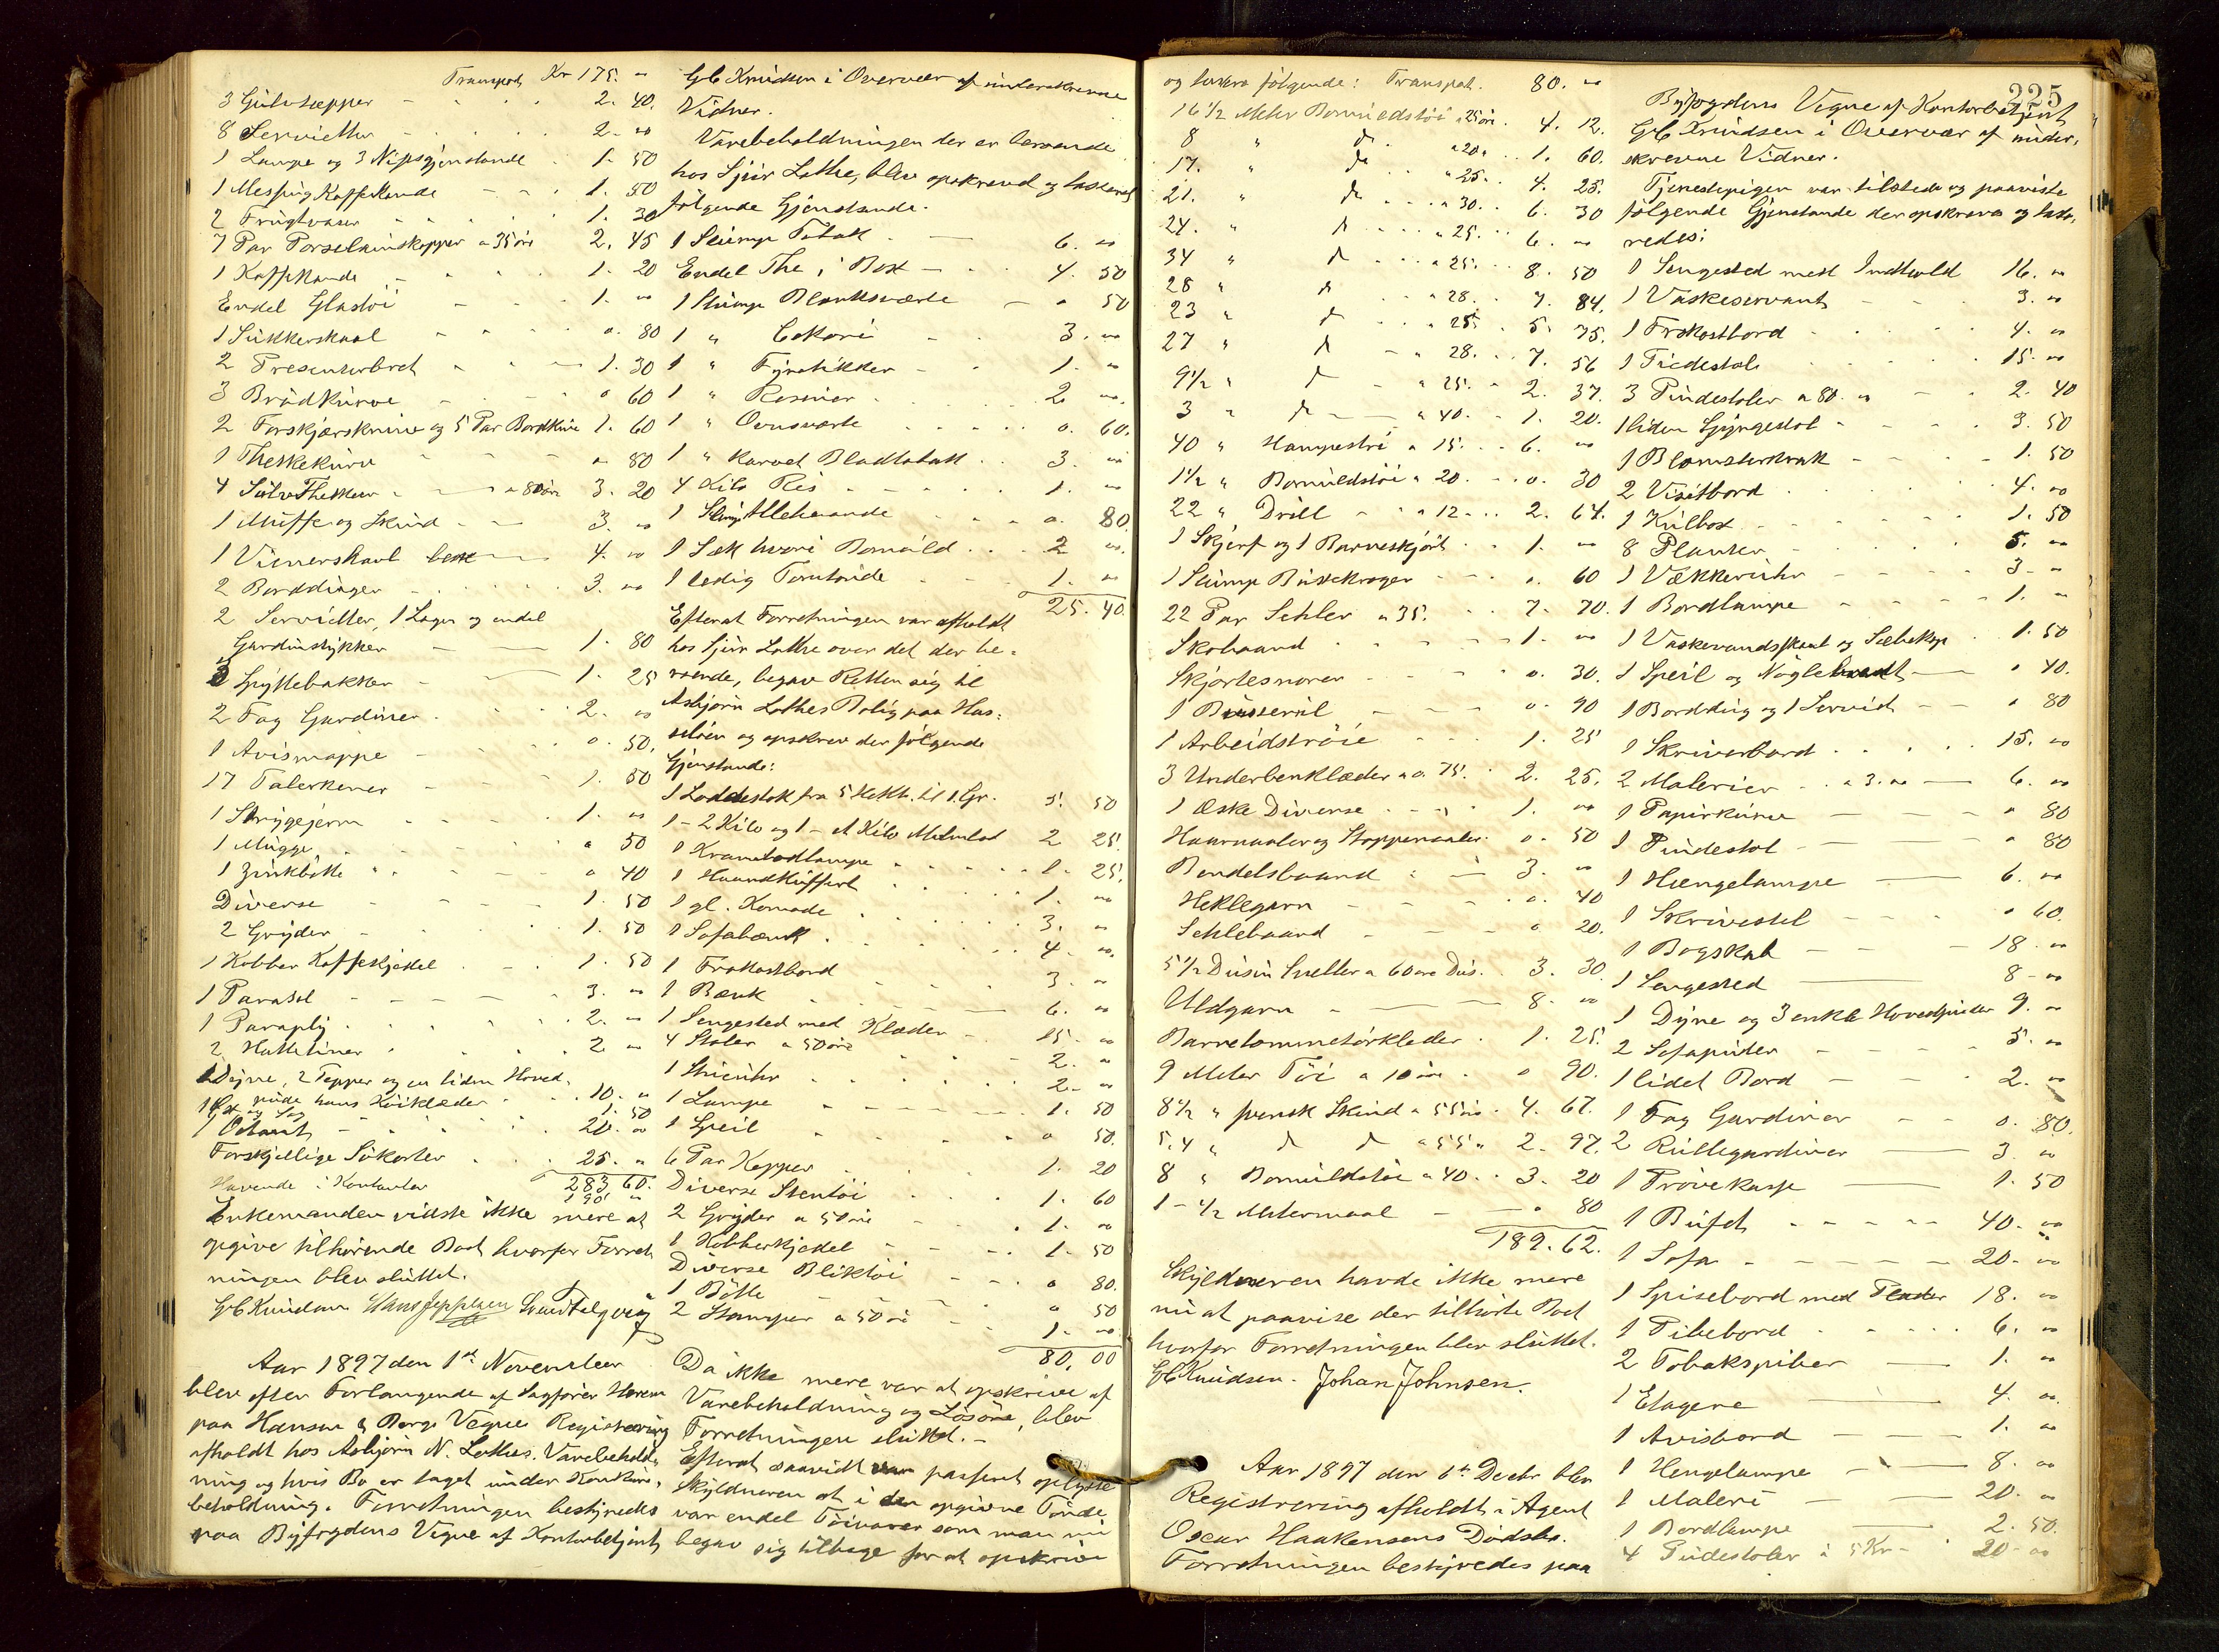 Transport Kr 175. "
3 Gulvtæpper - 2. 40.
8 Servietter 2. "
1 Lampe og 3 Nipsgjenstande 1. 50
1 Messing Kaffekande - - 1. 50
2 Frugtvaser 1. 30
7 Par Porselainskopper a 35 øre 2. 45
1 Kaffekande - 1. 20
Endel Glastøi 1. "
1 Sukkerskaal 0. 80
2 Presenterbret 1. 30
3 Brødkurve " 60
2 Forskjærsknive og 5 Par Bordknive 1. 60
1 Theskekurv " 80
4 Sølv Theskeer - a 80 øre 3. 20
1 Muffe og Skind - - 3. "
1 Vinershavl 4. "
2 Borddúger 3. "
2 Servietter, 1 Lagen og endel
Gardinstykker 1. 80
3 Spyttebakker 1. 25
2 Fag Gardiner 2. "
1 Avismappe 0. 50.
17 Talerkener 1. 50
1 Strygejern 1. "
1 Mugge " 50
1 Zinkbøtte " 40
Diverse 1. 50
2 Gryder 1. 50
1 Kobber Kaffekjedel 1. 50
1 Parasol 3. "
1 Paraply 2. "
2 2. "
1 Dyne, 2 Tepper og en liden Hoved-
pude hans Køiklæder 10. "
1 og Sag 1. 50
1 Octant 20. "
Forskjellige Søkarter 25. "
283 60.
Havende i Kontanter 190 "
Enkemanden vidste ikke mere at
opgive tilhørende Boet hvorfor Forret
ningen blev sluttet.
GC Knudsen Hans Jeppesen

Aar 1897 den 1st November
blev efter Forlangende af Sagfører
paa Hansen & Borgs Vegne Registrering
afholdt hos Asbjørn N. Lothes. Varebehold
ning og hvis Bo er taget under Konkurs-
beholdning. Forretningen bestyredes
paa Byfogdens Vegne af Kontorbetjent
GC Knudsen i Overvær af underskrevne
Vidner.
Varebeholdningen der er beroende
hos Sjur Lothe, blev opskrevet og taxeret
følgende Gjenstande.
1 Slump Tobak - 6. "
Endel The i Box - 4. 50
1 Slump Blanksværte - " 50
1 " Cekori 3. "
1 " Fyrstikker - 1. "
1 " Rosiner 2 ".
1 " Ovnsværte 0. 60.
1 " karvet Bladtobak 3. "
4 Kilo Ris 1. "
1 Slump Allehaande 0. 80.
1 Sæk hvori Bomuld 2 ".
1 ledig Torntønde 1. "
25. 40.
Efterat Forretningen var afholdt
hos Sjur Lothe over det der be-
roende, begav Retten sig til
Asbjørn Lothes Bolig paa Has-
seløen og opskrev der følgende
Gjenstande:
1 Loddestok fra 5 Hekto. til 1 Gr. 5. 50
1 - 2 Kilo og 1 - 1 Kilo Metallod 2 25.
1 Kranelodlampe 1. 25.
1 Haandkuffert 1. "
1 gl. Komode 3. "
1 Sofabænk 4. ".
1 Frokostbord 3. "
1 Bænk 6. "
1 Sengested med Klæder 15. "
4 Stoler a 50 øre 2. "
1 Stueuhr 2. "
1 Lampe 1. 50
1 Speil " 50.
6 Par Kopper 1. 20
Diverse Stentøi 1. 60
2 Gryder a 50 øre 1. "
1 Kobberkjedel 1. 50
Diverse Bliktøi " 80.
1 Bøtte " 50
2 Stamper a 50 øre 1. "
80,00
Da ikke mere var at opskrive af
Varebeholdning og Løsøre, blev
Forretningen sluttet. -
Efterat saavidt var passeret oplyste
Skyldneren at i den opgivne Tønde
var endel Tøivarer som man nu
begav sig tilbage for at opskrive

og taxere følgende: Transport. 80. "
16 1/2 Meter Bomuldstøi a 25 øre. 4. 12.
8 " do " 20 " 1. 60.
17. " do " 25. 4. 25.
21. " do " 30. 6. 30
24. " d " 25. 6. "
34 " d " 25. 8. 50
28 " d " 28. 7. 84.
23 " d " 25. 5. 75.
27 " d " 28. 7. 56
9 1/2 " d " 25. 2. 37.
3 " d " 40. 1. 20.
40 " Hampestri a 15. 6. "
1 1/2 " Bomuldstøi a 20. 0. 30
22 " Drill " 12 2. 64.
1 Skjørt og 1 Barneskjørt 1. "
1 Slump Buxekroger 0. 60
22 Par Sehler a 35. 7. 70.
Skobaand 1. "
Skjortesnorer 0. 30.
1 0. 90
1 Arbeidstrøie 1. 25
3 Underbenklæder a 0.75. 2. 25.
1 Æske Diverse 1. "
Haarnaaler og Stoppenaaler 0. 50
Bendelsbaand 3. "
Heklegarn 0. 40
Sehlebaand 0 20.
5 1/2 Dusin Sneller a 60 øre Dus. 3. 30
Uldgarn 8. "
Barnelommetørklæder 1. 25.
9 Meter Tøi a 10 øre " 90.
8 1/2 " svensk Skind a 55 øre 4. 67.
5.4 " d d a 55 " 2. 97.
8 " Bomuldstøi a 40. 3. 20
1 - 1/2 Metermaal " 80
189. 62.
Skyldneren havde ikke mere
nu at paavise der tilhørte Boet
hvorfor Forretningen blev sluttet.
GC Knudsen. Johan Johnsen.

Aar 1897 den 6te Decbr blev
Registrering afholdt i Agent
Oscar Haakensens Dødsbo.
Forretningen bestyredes paa
225
Byfogdens Vegne af Kontorbetjent
GC Knudsen i Overvær af under-
skrevne Vidner.
Tjenestepigen var tilstede og paaviste
følgende Gjenstande der opskreves og taxe-
redes:
1 Sengested med Indhold 16. "
1 Vaskeservant 3. "
1 Frokostbord 4. "
1 15. "
3 Pindestoler a 80. " 2. 40
1 liden Gyngestol 3. 50
1 Blomsterkrak 1. 50
2 Visitbord 4. "
1 Kulbox 1. 50
8 Planter 5. "
1 Vækkeruhr 3 "
1 Bordlampe 1. "
1 Vaskevandsskaal og Sæbekop 1. 50
1 Speil og Nøglebræt " 40.
1 Borddug og 1 Serviet " 80
1 Skriverbord 15. "
2 Malerier a 3. " 6. "
1 Papirkurv " 80
1 Pindestol " 80
1 Hængelampe 6. "
1 Skrivestel " 60.
1 Bogskab 18. "
1 Sengested 8 "
1 Dyne og 3 enkle Hovedpuder 9. "
2 Sofaputer 5. "
1 lidet Bord 2. "
1 Fag Gardiner 0. 80.
2 Rullegardiner 3 "
1 Prøvekasse 1. 50
1 Bufet 40. "
1 Sofa 20. "
1 Spisebord med Plader 18. "
1 Pibebord 6. "
2 Tobakspiber 1. "
1 Etagere 4. "
1 Avisbord 1. "
1 Hengelampe 8. "
1 Maleri 20. "
1 Bordlampe 2. 50.
4 Pudestoler a 5 Kr 20. "